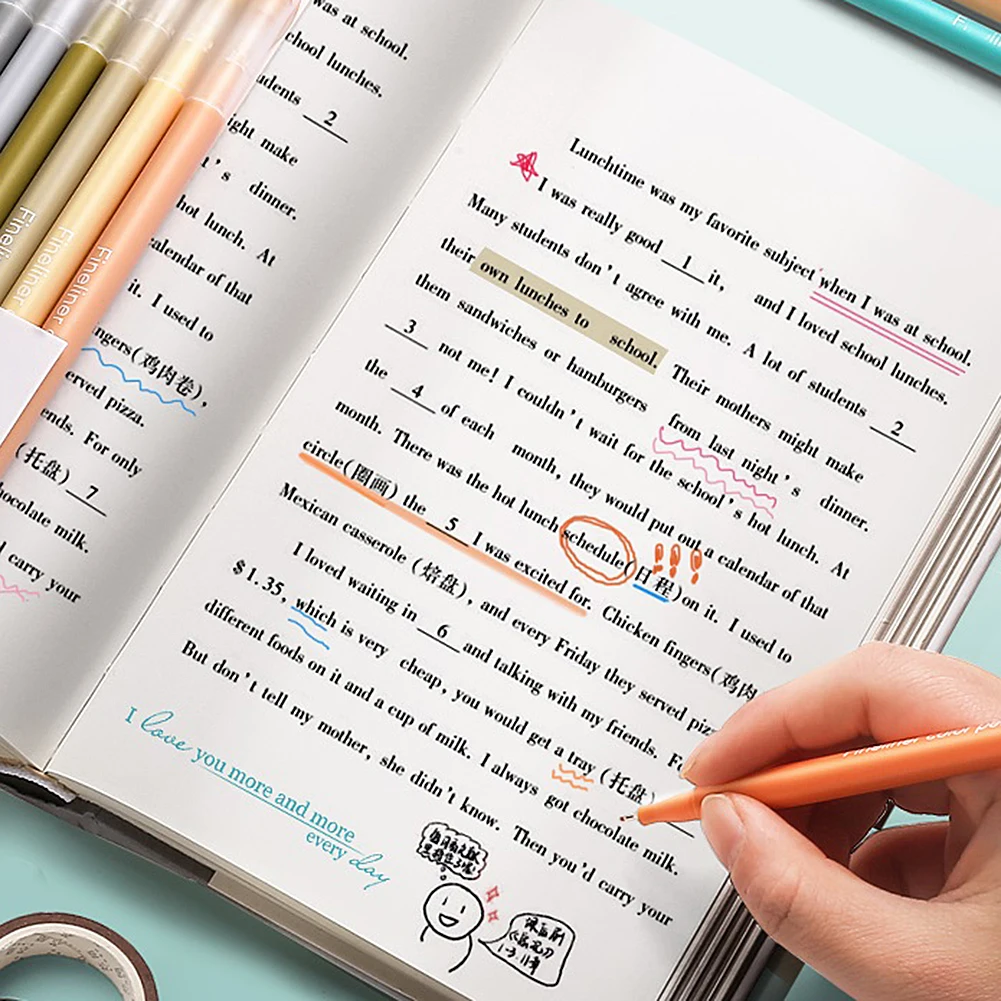 was at school.
chool lunches.
udents 2
ight make
t's dinner.
hot lunch. At
alendar of that
it. I used to
ingers(鸡肉卷),
erved pizza.
ends. For only
(托盘) 7
hocolate milk.
d carry your
Fineliner
Fineliner
Fineliner
Lunchtime was my favorite subject when I was at school.
I was really good 1 it, and I loved school lunches.
Many students don't agree with me. A lot of students 2
their own lunches to school. Their mothers might make
them sandwiches or hamburgers from last night's dinner.
3 not me! I couldn't wait for the school's hot lunch. At
the 4 of each month, they would put out a calendar of that
month. There was the hot lunch schedule(日程)on it. I used to
circle(圈画) the 5 I was excited for. Chicken fingers(鸡肉
Mexican casserole (焙盘), and every Friday they served piz
I loved waiting in 6 and talking with my friends. F
$1.35, which is very cheap, you would get a tray (托盘)
different foods on it and a cup of milk. I always got chocolate milk.
But don't tell my mother, she didn't know. Then you'd carry your
!!!
I love you more and more
every day
Fineliner color pe